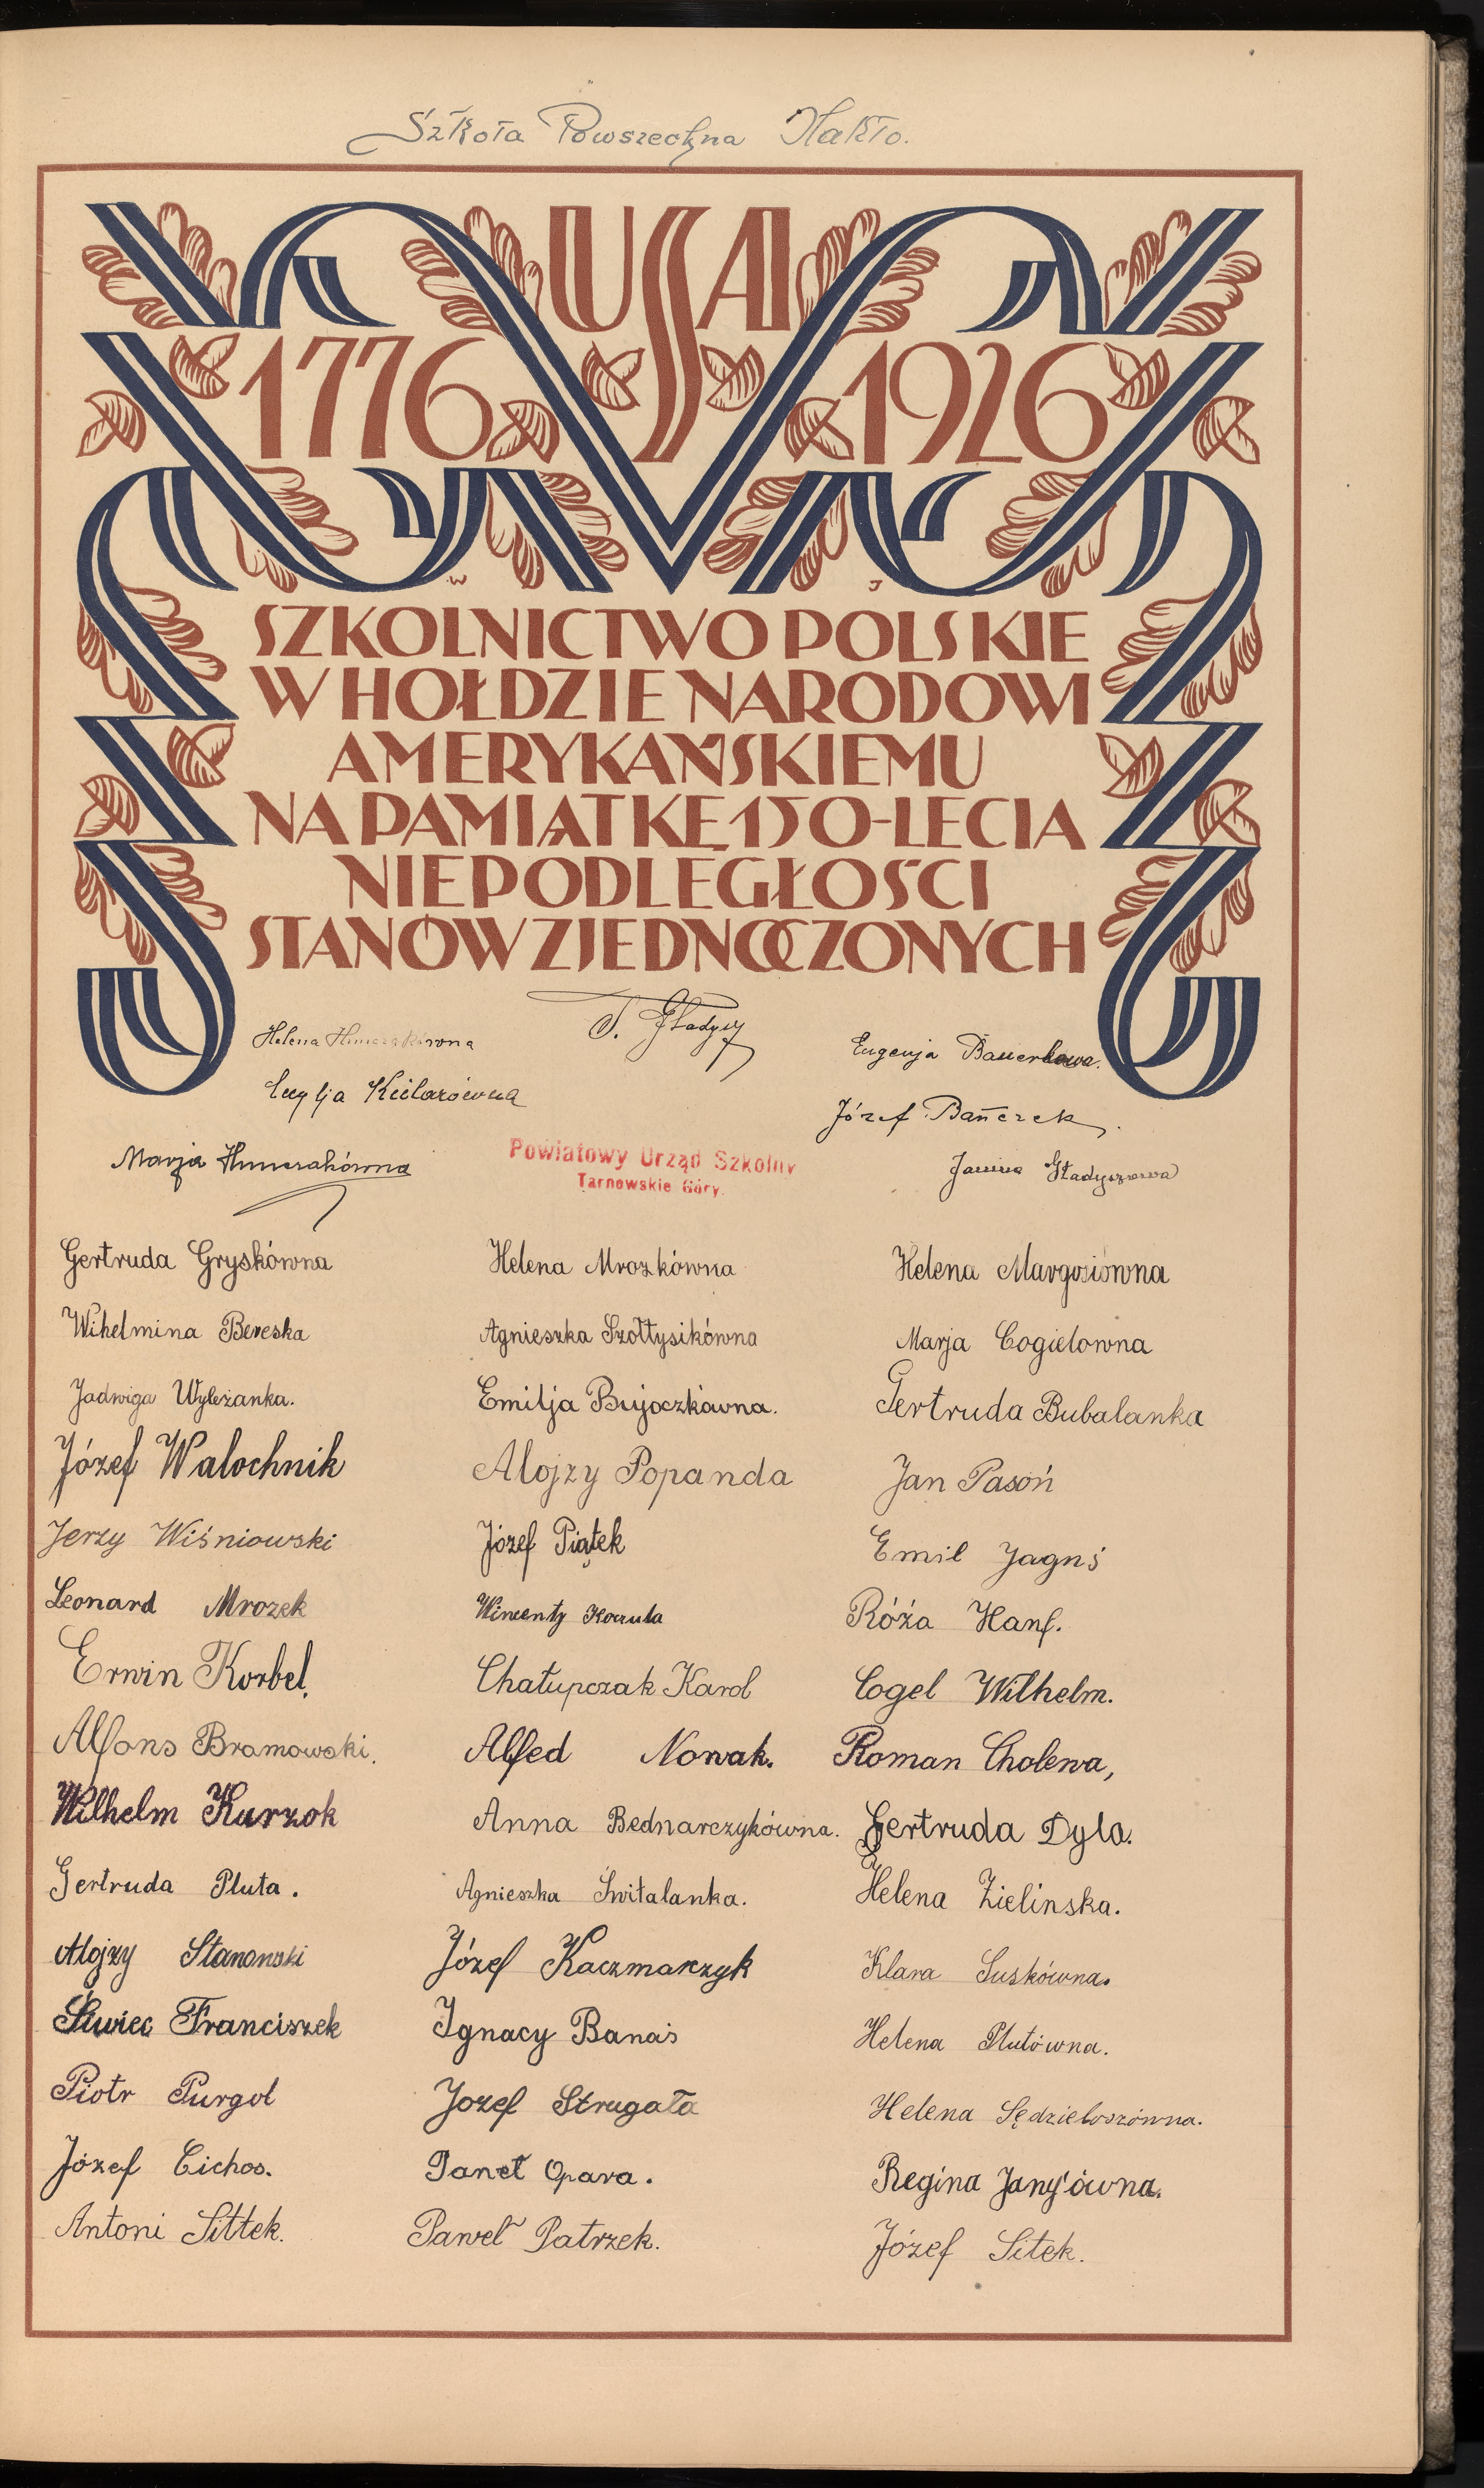 Szkoła Powszechna Nakło.
USA
1776 1926
W J
SZKOLNICTWO POLSKIE
W HOŁDZIE NARODOWI
AMERYKAŃSKIEMU
NA PAMIĄTKĘ 150-LECIA
NIEPODLEGŁOŚCI
STANÓW ZJEDNOCZONYCH
Helena
Eugenja
Józef Bańczek
Marja
Powiatowy Urząd Szkolny
Tarnowskie Góry.
Janina Gładyszowa
Gertruda Gryskówna Helena Mrozkówna Helena Margosiówna
Wihelmina Bereska Agnieszka Szołtysikówna Marja Cogielowna
Jadwiga Wyleżanka. Emilja Bujoczkówna. Gertruda Bubalanka
Józef Walochnik Alojzy Popanda Jan Pasoń
Jerzy Wiśniowski Józef Piątek Emil Jagnś
Leonard Mrozek Wincenty Róża Hanf.
Erwin Korbel. Chałupczak Karol Cogel Wilhelm.
Alfons Bramowski. Alfed Nowak. Roman Cholewa,
Wilhelm Kurzok Anna Bednarczykówna. Gertruda Dyla.
Gertruda Pluta. Agnieszka Świtalanka. Helena Zielinska.
Alojzy Stanowski Józef Kaczmarczyk Klara Suskówna.
Siwiec Franciszek Ignacy Banaś Helena Plutówna.
Piotr Purgol Jozef Strugała Helena Sędzielоszówna.
Józef Cichos. Opara. Regina Janyśówna.
Antoni Sittek. Paweł Patrzek. Józef Sitek.